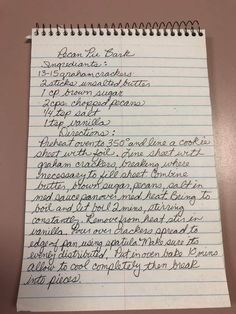 Pecan Pie Bark
Ingrediants:
13-15 graham crackers
2 sticks unsalted butter
1 cp brown sugar
2 cps chopped pecans
1/4 tsp salt
1 tsp vanilla
Directions:
Preheat oven to 350° and line a cookie
sheet with foil. Line sheet with
graham crackers, breaking where
necessary to fill sheet. Combine
butter, brown sugar, pecans, salt in
med sauce pan over med heat. Bring to
boil and let boil 2 mins, stirring
constantly. Remove from heat stir in
vanilla. Pour over crackers spread to
edge of pan using spatula. Make sure its
evenly distributed. Put in oven bake 10 mins
allow to cool completely then break
into pieces.